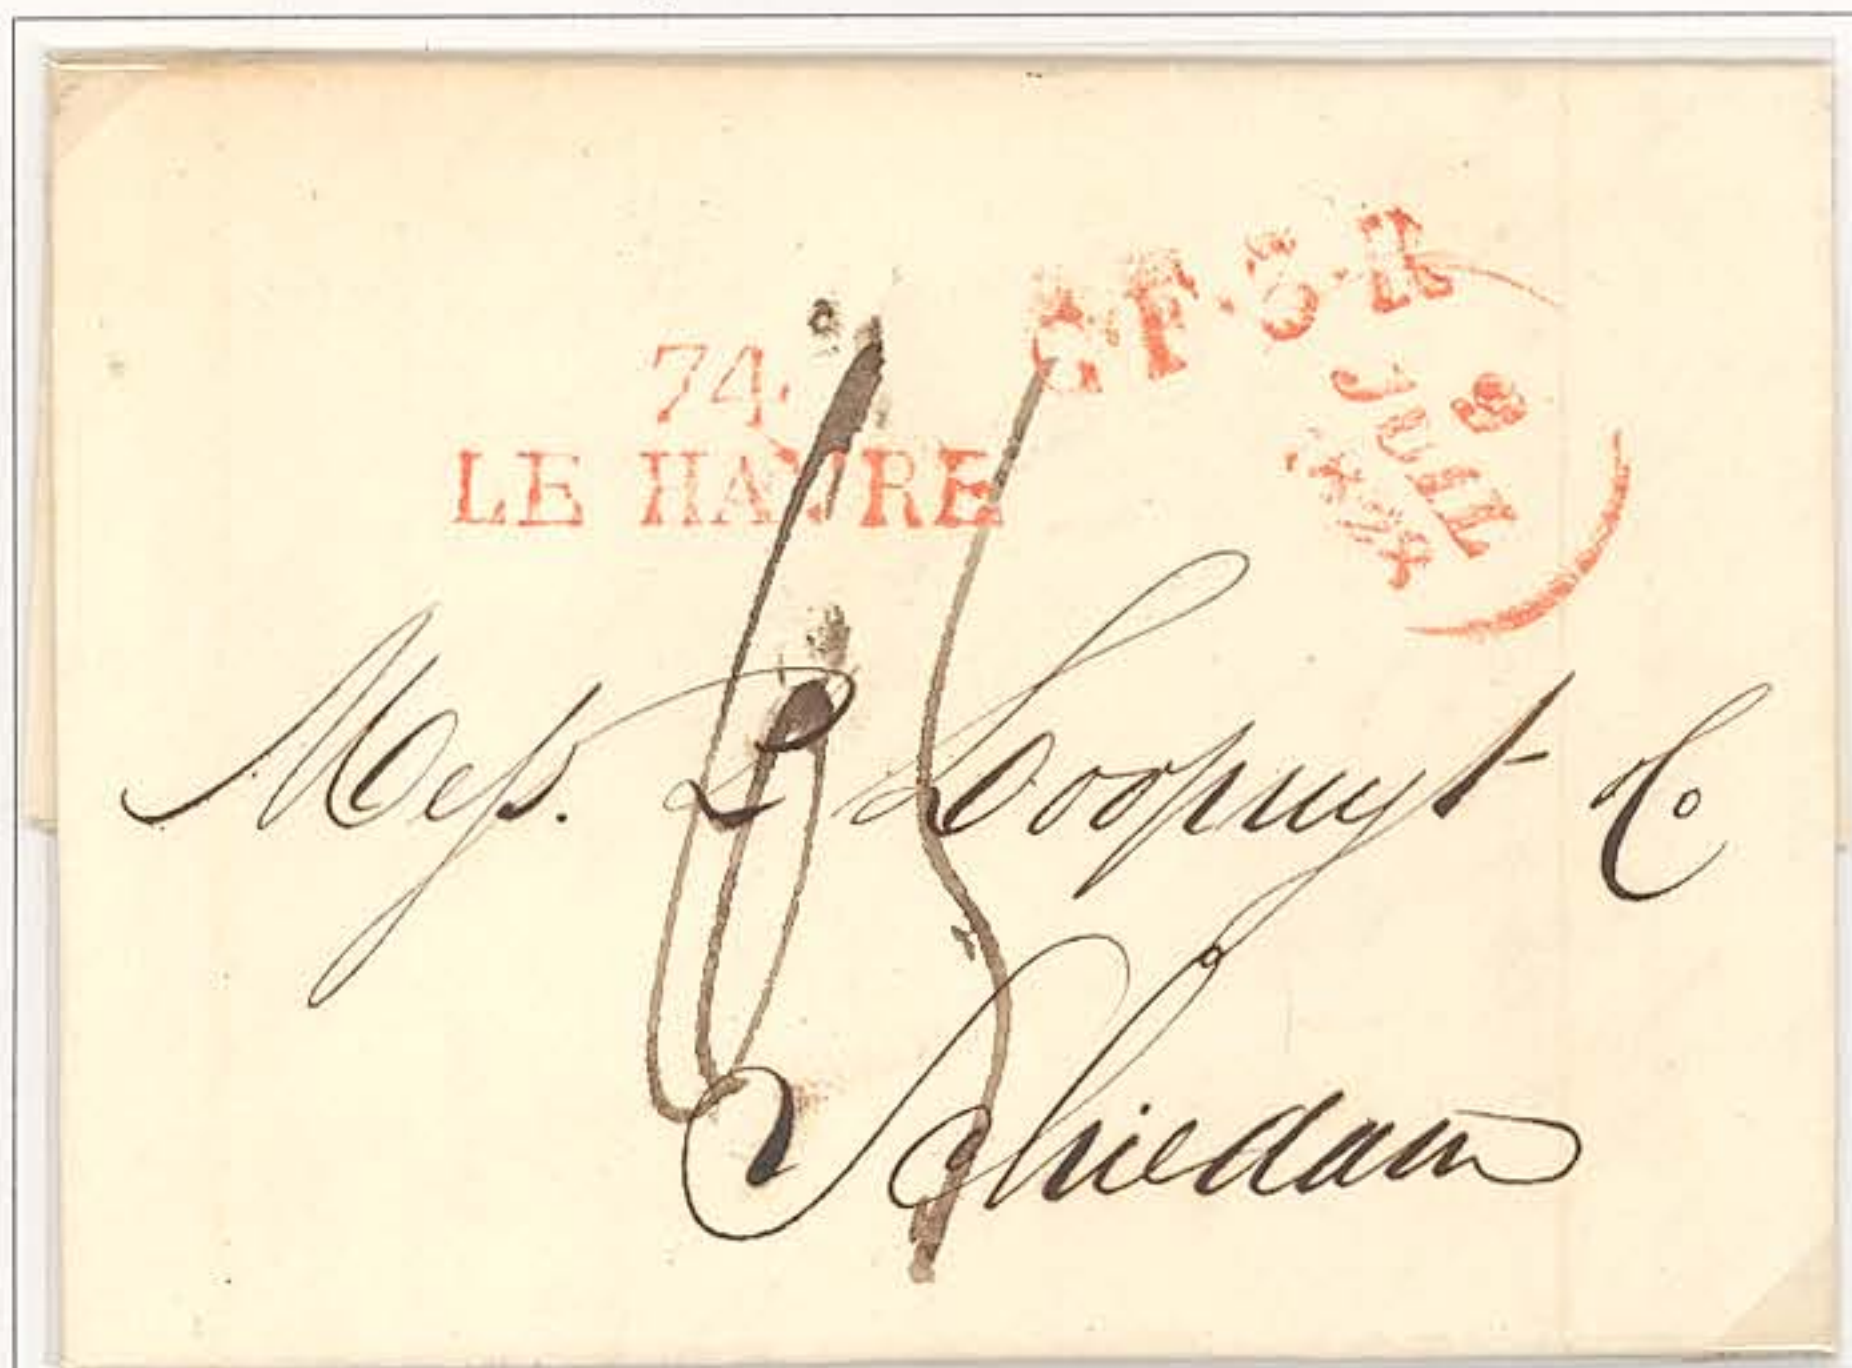 74
LE HAVRE
C.F.3.R
9
JUIL
Mess. P Loopuyt & Co
Schiedam